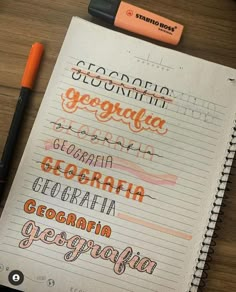 STABILO BOSS
GEOGRAFIA
geografia
geografia
GEOGRAFIA
GEOGRAFIA
GEOGRAFIA
GEOGRAFIA
geografia